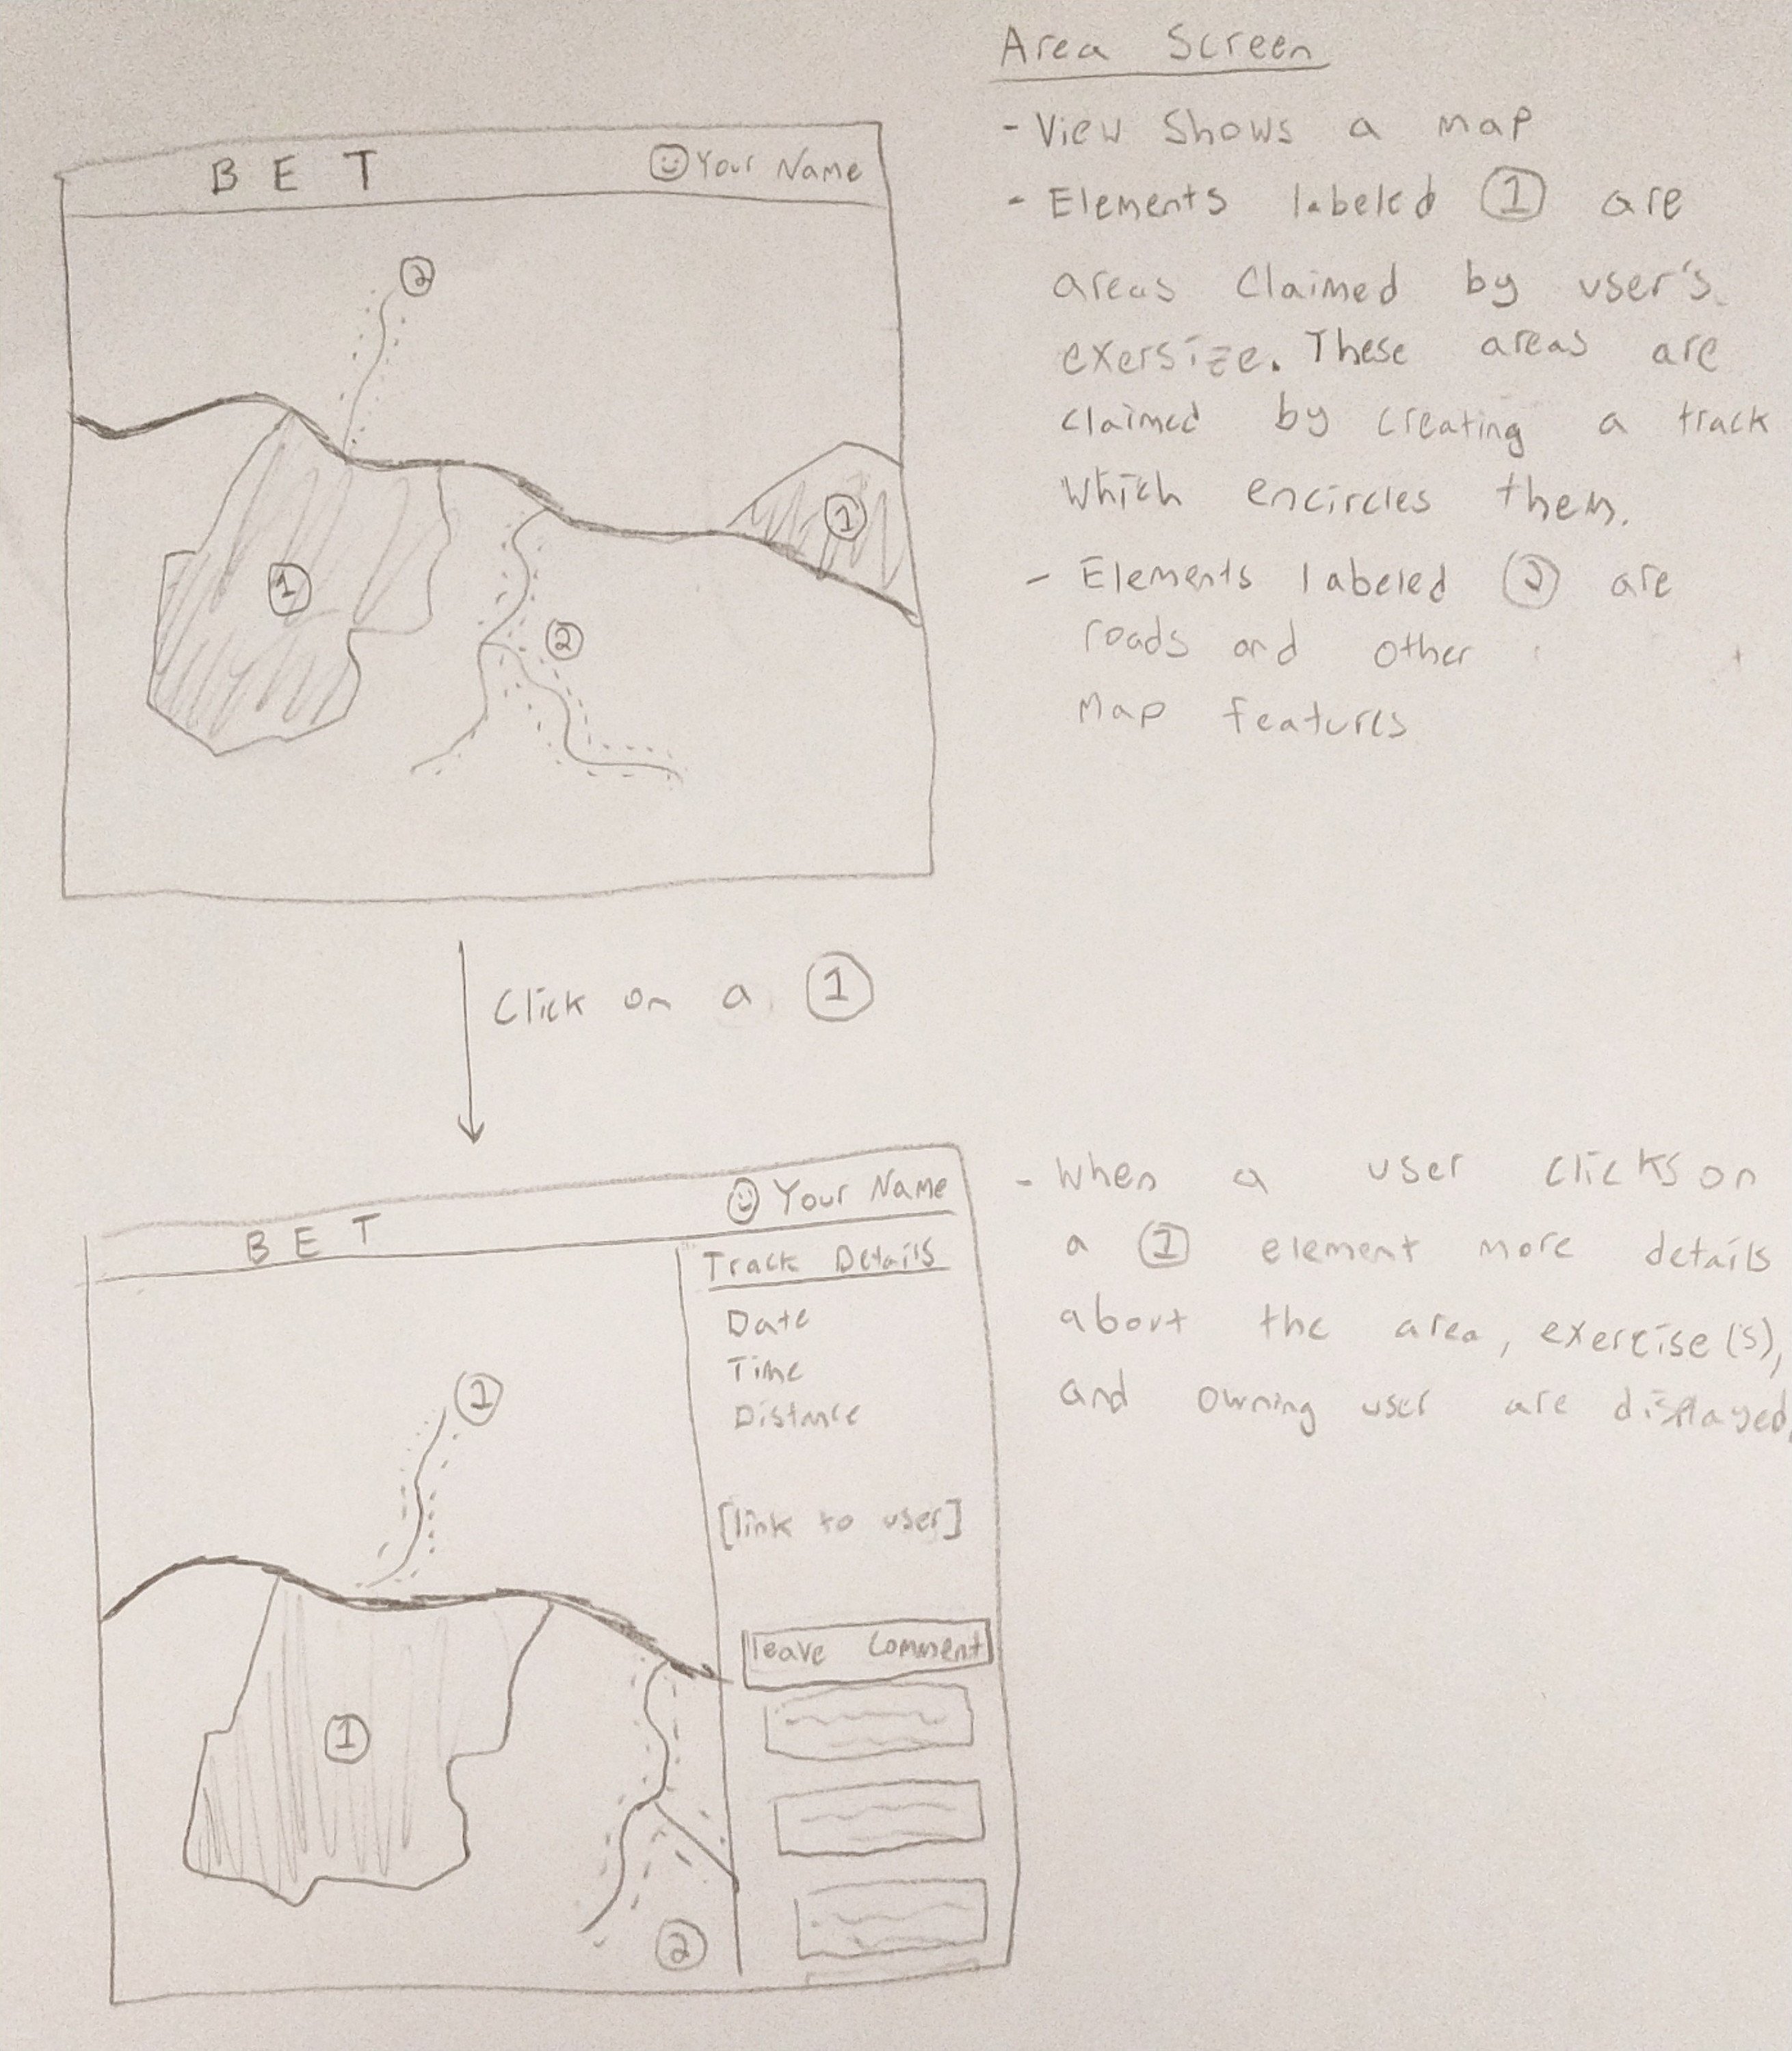 Area Screen
- View Shows a map
- Elements labeled ① are
areas Claimed by user's
exersize. These areas are
claimed by creating a track
which encircles them.
- Elements labeled ② are
roads and other
map features
BET
Your Name
②
①
①
②
Click on a ①
BET
Your Name
Track Details
Date
Time
Distance
[link to user]
leave comment
①
①
②
- When a user clicks on
a ① element more details
about the area, exercise(s),
and owning user are displayed.